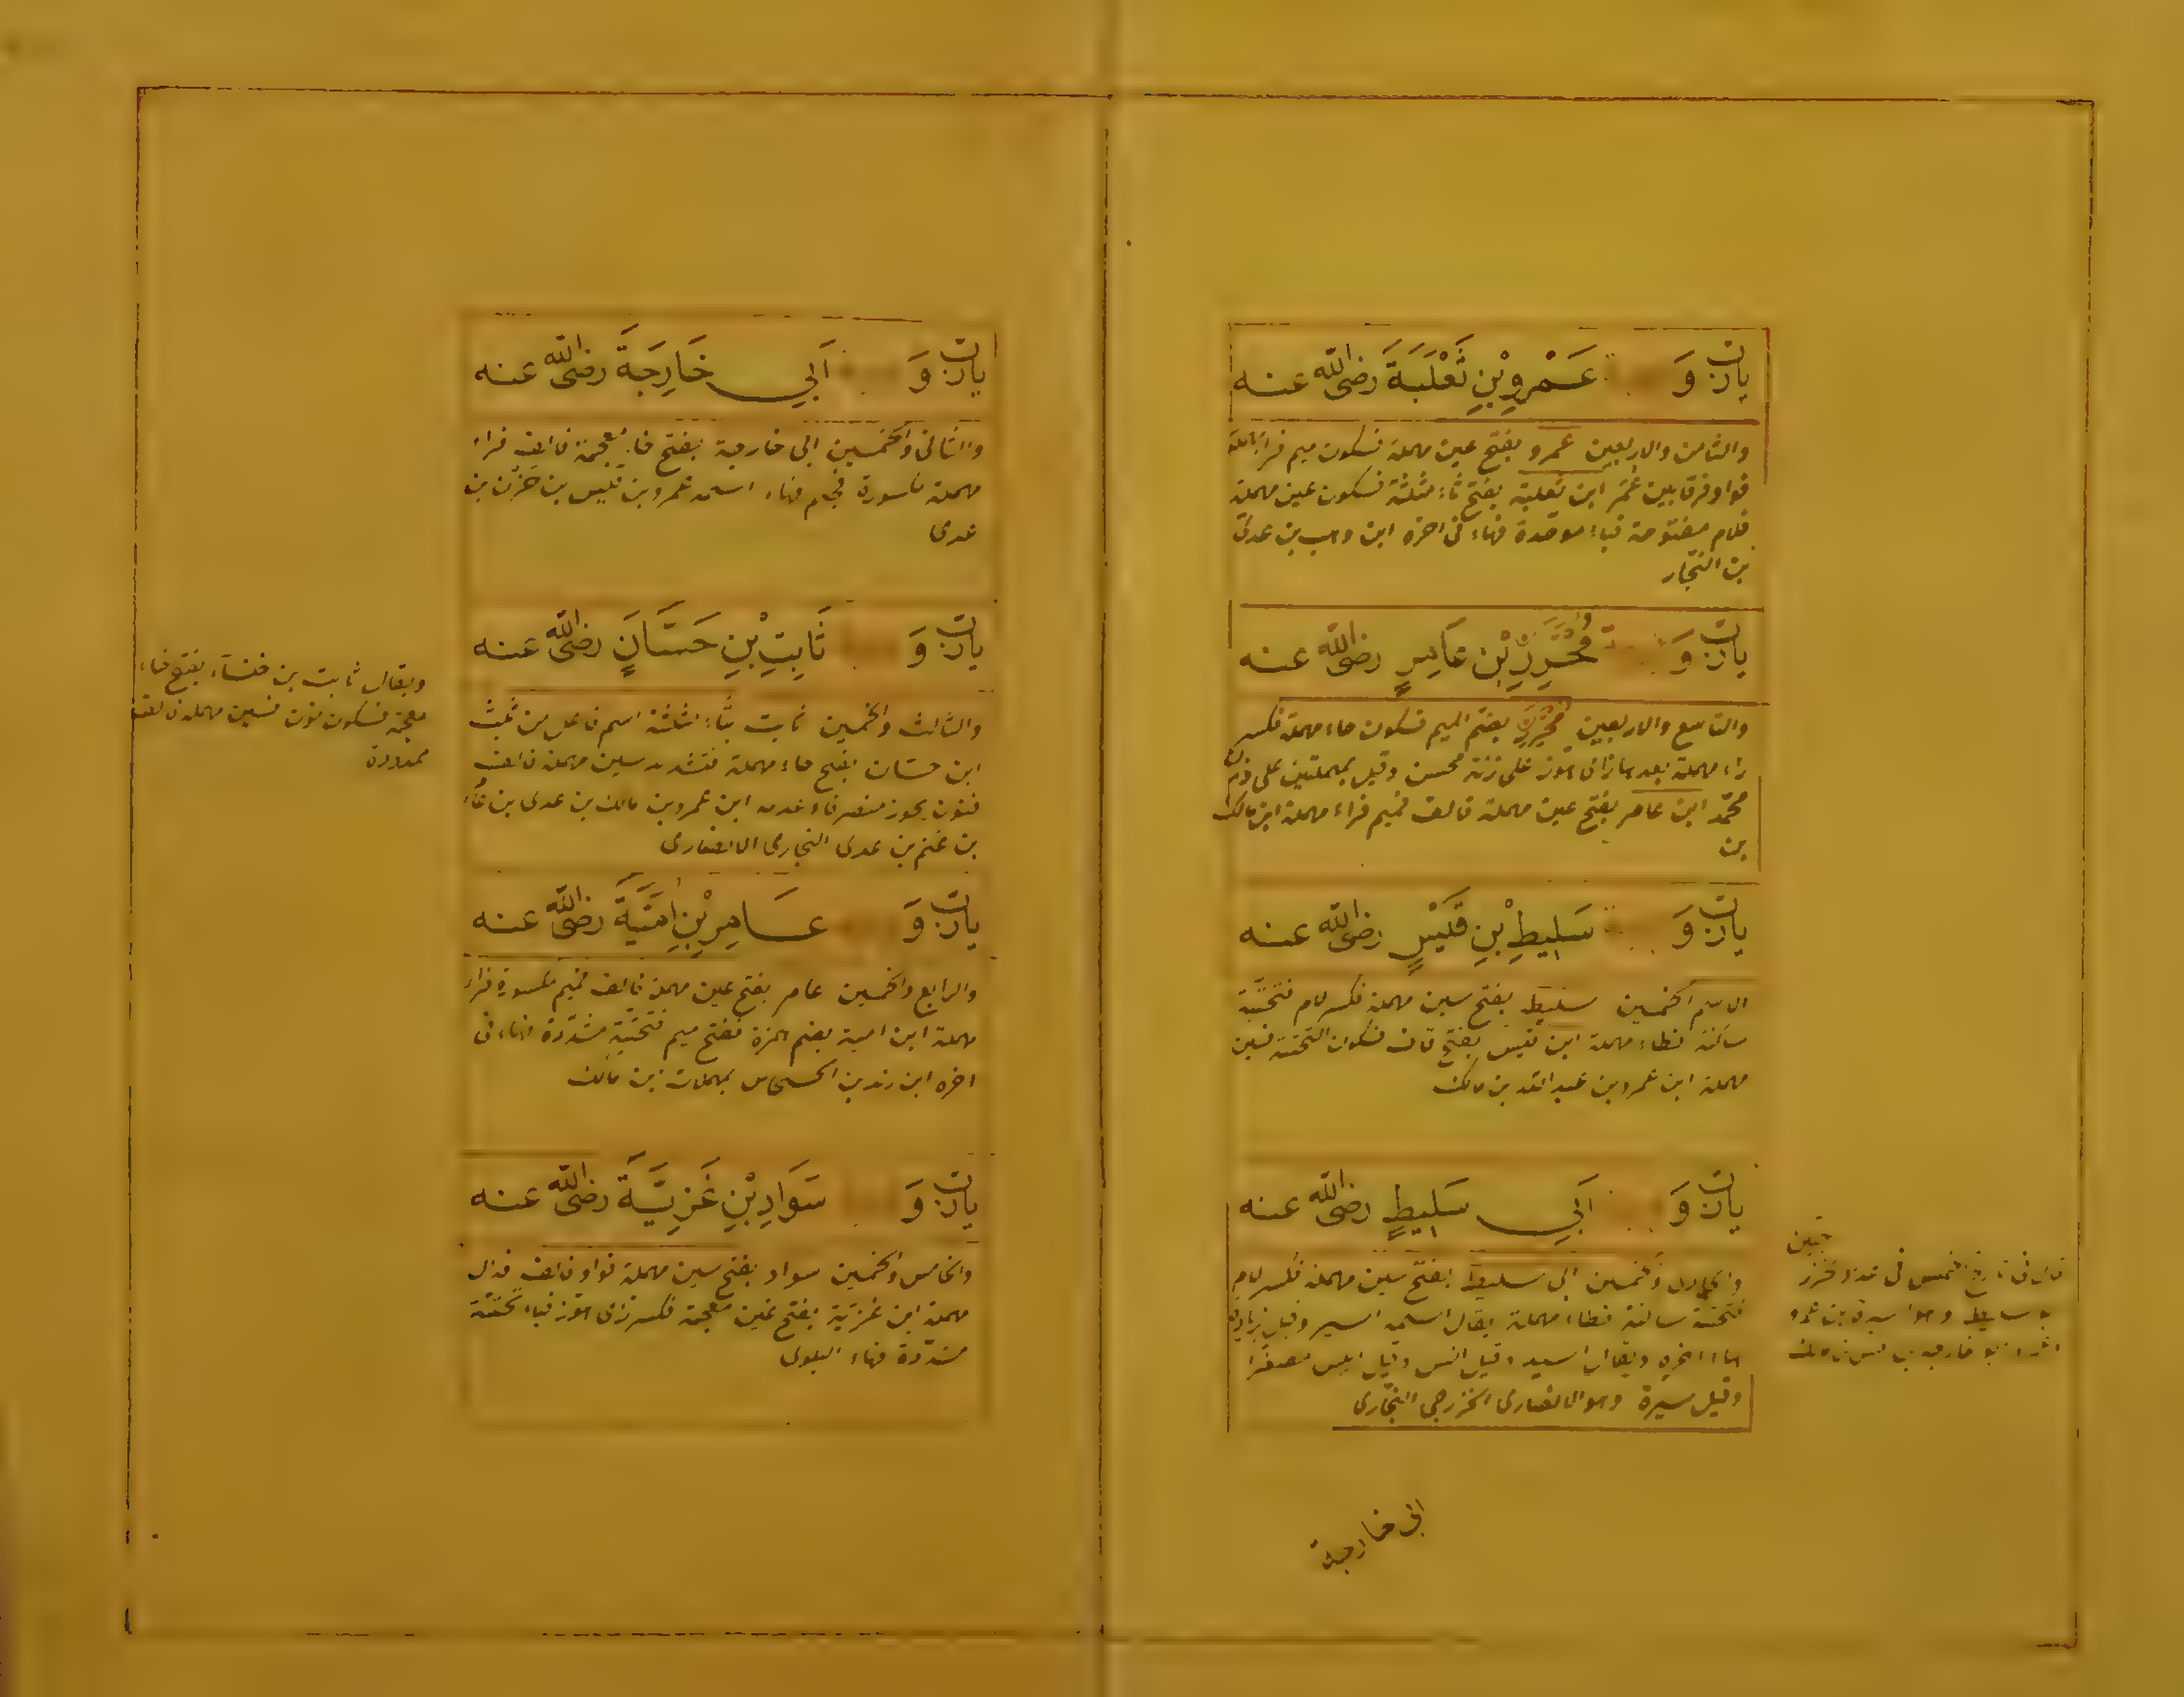 يارب و عَمْرِو بْنِ ثَعْلَبَةَ رضى الله عنه
والثامن والاربعين عمرو بفتح عين مهملة فسكون ميم فراء مهملة
فواو فرقا بين عُمَر ابن ثعلبة بفتح ثاء مثلثة فسكون عين مهملة
فلام مفتوحة فباء موحدة فهاء فى اخره ابن وهب بن عدى
بن النجار
يارب و مُحْرِزِ بْنِ عَامِرٍ رضى الله عنه
والتاسع والاربعين محرز بضم الميم فسكون حاء مهملة فكسر
راء مهملة بعدها زاى هوز على زنة محسن وقيل بمهملتين على وزن
محمد ابن عامر بفتح عين مهملة فالف فميم فراء مهملة ابن مالك
بن
يارب و سَلِيطِ بْنِ قَيْسٍ رضى الله عنه
الاسم الخمسين سليط بفتح سين مهملة فكسر لام فتحتية
ساكنة فطاء مهملة ابن قيس بفتح قاف فسكون التحتية فسين
مهملة ابن عمرو بن عبد الله بن مالك
يارب و اَبِي سَلِيطٍ رضى الله عنه
والحادى والخمسين ابى سليط بفتح سين مهملة فكسر لام
فتحتية ساكنة فطاء مهملة يقال اسمه اسير وقيل بزيادة
هاء اخره ويقال اسيد وقيل انس وقيل انيس مصغرا
وقيل سبرة وهو الانصارى الخزرجى النجارى
ابى خارجة
يارب و اَبِي خَارِجَةَ رضى الله عنه
والثانى والخمسين ابى خارجة بفتح خاء معجمة فالف فراء
مهملة مكسورة فجيم فهاء اسمه عمرو بن قيس بن حزن بن
عدى
يارب و ثَابِتِ بْنِ حَسَّانٍ رضى الله عنه
والثالث والخمسين ثابت بثاء مثلثة اسم فاعل من ثبت
ابن حسان بفتح حاء مهملة فتشديد سين مهملة فالف
فنون يجوز منصرفا وعدمه ابن عمرو بن مالك بن عدى بن عامر
بن غنم بن عدى النجارى الانصارى
ويقال ثابت بن خنساء بفتح خاء
معجمة فسكون نون فسين مهملة فالف
ممدودة
يارب و عَامِرِ بْنِ اُمَيَّةَ رضى الله عنه
والرابع والخمسين عامر بفتح عين مهملة فالف فميم مكسورة فراء
مهملة ابن امية بضم همزة ففتح ميم فتحتية مشددة فهاء فى
اخره ابن زيد بن الحسحاس بمهملات بن مالك
يارب و سَوَادِ بْنِ غَزِيَّةَ رضى الله عنه
والخامس والخمسين سواد بفتح سين مهملة فواو فالف فدال
مهملة ابن غزية بفتح غين معجمة فكسر زاى هوز فياء تحتية
مشددة فهاء البلوى